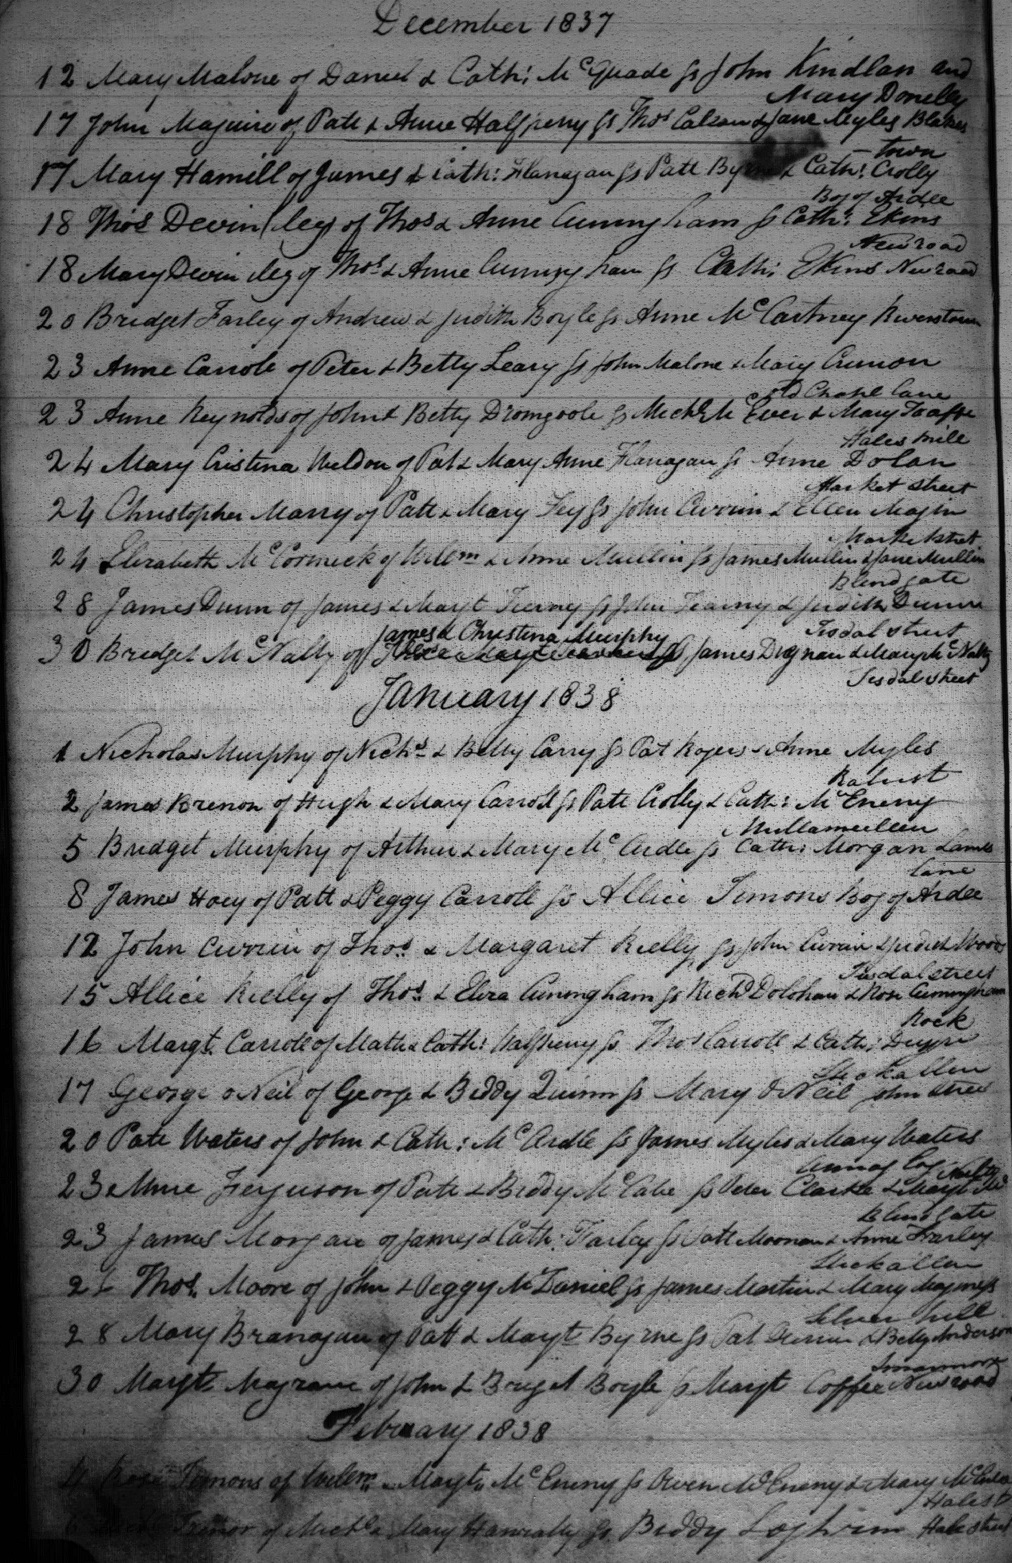 December 1837
12 Mary Malone of Daniel & Cath: McQuade Ss John Kindlan and
Mary Donelly
17 John Maguire of Patt & Anne Halfpeny Ss Thos Calean & Jane Myles Blakes
town
17 Mary Hamill of James & Cath: Flanagan Ss Patt Byrne & Cath: Crolly
Bog of Ardee
18 Thos Devin leg of Thos & Anne Cuningham Ss Cath: Ekins
New road
18 Mary Devin leg of Thos & Anne Cuningham Ss Cath: Ekins New road
20 Bridget Farley of Andrew & Judith Boyle Ss Anne McCartney Riverstown
23 Anne Carrole of Peter & Betty Leary Ss John Malone & Mary Crinion
Old Chapl lane
23 Anne Reynolds of John & Betty Dromgoole Ss Michl McEver & Mary Taaffe
Hales mill
24 Mary Cristina Weldon of Pat & Mary Anne Flanagan Ss Anne Dolan
Market street
24 Christopher Marry of Patt & Mary Fey Ss John Curvin & Ellen
Market street
24 Elizabeth McCormick of Willm & Anne Mullin Ss James Mullin & Jane Mullin
Blind gate
28 James Dunn of James & Margt Tierny Ss John & Judith Dunn
Tisdal street
James & Christina Murphy
30 Bridget McNally of Ss James Dignan & Margt McNally
Tisdal street
January 1838
1 Nicholas Murphy of Nichs & Betty Carry Ss Pat Rogers & Anne Myles
2 James Brenon of Hugh & Mary Carroll Ss Patt Crolly & Cath: McEneny
Mullameelan
5 Bridget Murphy of Arthur & Mary McArdle Ss Cath: Morgan Lambs
lane
8 James Hoey of Patt & Peggy Carroll Ss Allice Timons Bog of Ardee
12 John Curvin of Thos & Margaret Rielly Ss John Curvin & Judith Woods
Tisdal street
15 Allice Rielly of Thos & Eliza Cuningham Ss Richd Dolohan & Rose Cuningham
Rock
16 Margt Carroll of Math & Cath: Halfpeny Ss Thos Carroll & Cath:
Shekallen
17 George oNeil of George & Biddy Quinn Ss Mary ONeil John Street
20 Patt Waters of John & Cath: McArdle Ss James Myles & Mary Waters
23 Anne Ferguson of Patt & Biddy McCabe Ss Peter Clarke & Margt
Blind gate
23 James Morgan of James & Cath: Farley Ss Patt Moonan & Anne Farley
Shekallen
Thos Moore of John & Peggy McDaniel Ss James Martin & Mary
Silver hill
28 Mary Branagan of Patt & Margt Byrne Ss Pat & Betty Anderson
30 Margt Magrane of John & Briget Boyle Ss Margt Coffee New road
February 1838
4 Timons of Willm & Margt McEneny Ss Owen McEneny & Mary
Hale st
6 of Michl & Mary Ss Biddy Hale street